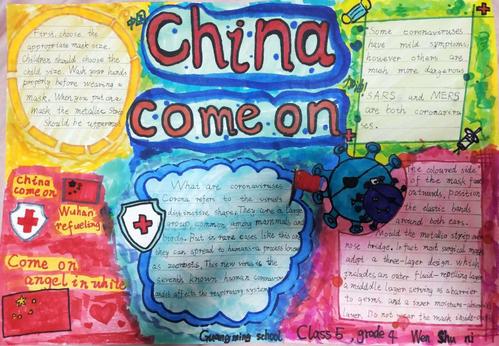 中国
China
come on
First, choose the
appropriate mask size.
Children should choose the
child size. Wash your hands
properly before wearing a
mask. When you put on a
mask the metalic
should be uppermost
Some coronaviruses
have mild symptoms,
however others are
much more dangerous.
SARS and MERS
are both coronavirus
es.
China
come on
Wuhan
refueling
Come on
angel in white
What are coronaviruses
Corona refer to the virus's
distinctive shape. They are a large
group, common among mammals and
birds. But in rare cases like this on
they can spread to humans in a process known
as zoonosis. This new virus is the
seventh known human coronavirus
and it affects the respiratory system.
The coloured side
of the mask face
outwards, position
the elastic bands
around both ears.
Mould the metalic strip
nose bridge. In fact most surgical masks
adopt a three-layer design. which
includes an outer fluid-repelling layer
a middle layer serving as a barrier
to germs, and a inner moisture-
layer. Do not wear the mask inside-out
Guangming school Class 5, grade 4 Wen Shu ni